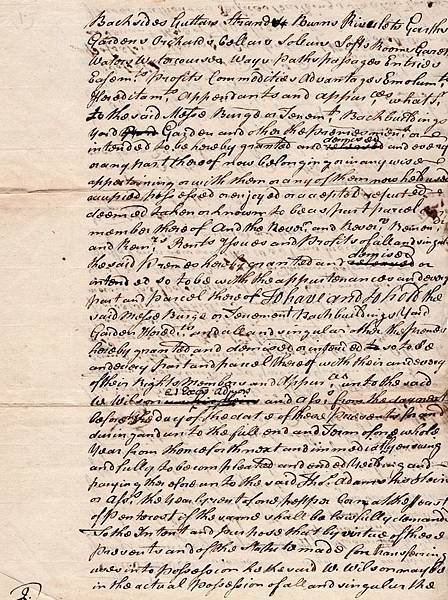 Backsides Gutters Strands Burns Rivulets Garths
Gardens Orchards Cellars Solears Lofts Rooms
Waters Watercourses Ways paths passages Entries
Easemts. Profits Commodities Advantages Emolumts
Hereditamts. Appendants and Appurces. whats
to the said Messe Burge or Tenemt. Backbuildings
Yard Garden and other the premes ment or
intended to be hereby granted and demised and every
or any part thereof now belonging or in any wise
appertaining or with them or any of them now
occupied possessed or enjoyed or accepted reputed
deemed taken or known to be as part parcel or
member thereof And the Rever. and Revers. Remr
and Remrs. Rents Issues and Profits of all and singular
the said Premes hereby granted and demised or
intended so to be with the appurtenances and every
part and parcel thereof To have and to hold the
said Messe Burge or Tenement Backbuildings Yard
Garden Heredts. and all and singular other the premes
hereby granted and demised or intended so to be
and every part and parcel thereof with their and every
of their Rights Members and Appurces. unto the said
W Wilson his Exors Admors and Ass. from the day next
before the day of the date of these Presents for and
during and unto the full end and Term of one whole
Year from thence forth next and immediately ensuing
and fully to be compleated and ended Yielding and
paying therefore unto the said Thos. Adams his Heirs
or Ass. the Yearly rent of one pepper Corn at the Feast
of Pentecost if the same shall be lawfully demand
To the Intent and purpose that by virtue of these
presents and of the Statute made for Transferring
uses into possession he the said W Wilson may be
in the actual Possession of all and singular the